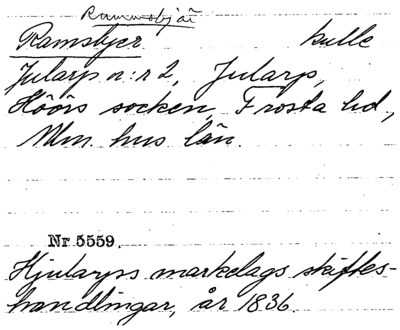 Ramsbjer kulle
Jularp n:r 2, Jularp,
Höörs socken, Frosta hd,
Mlm. hus län.
Nr 5559.
Hjularps markelags skiftes-
handlingar, år 1836.